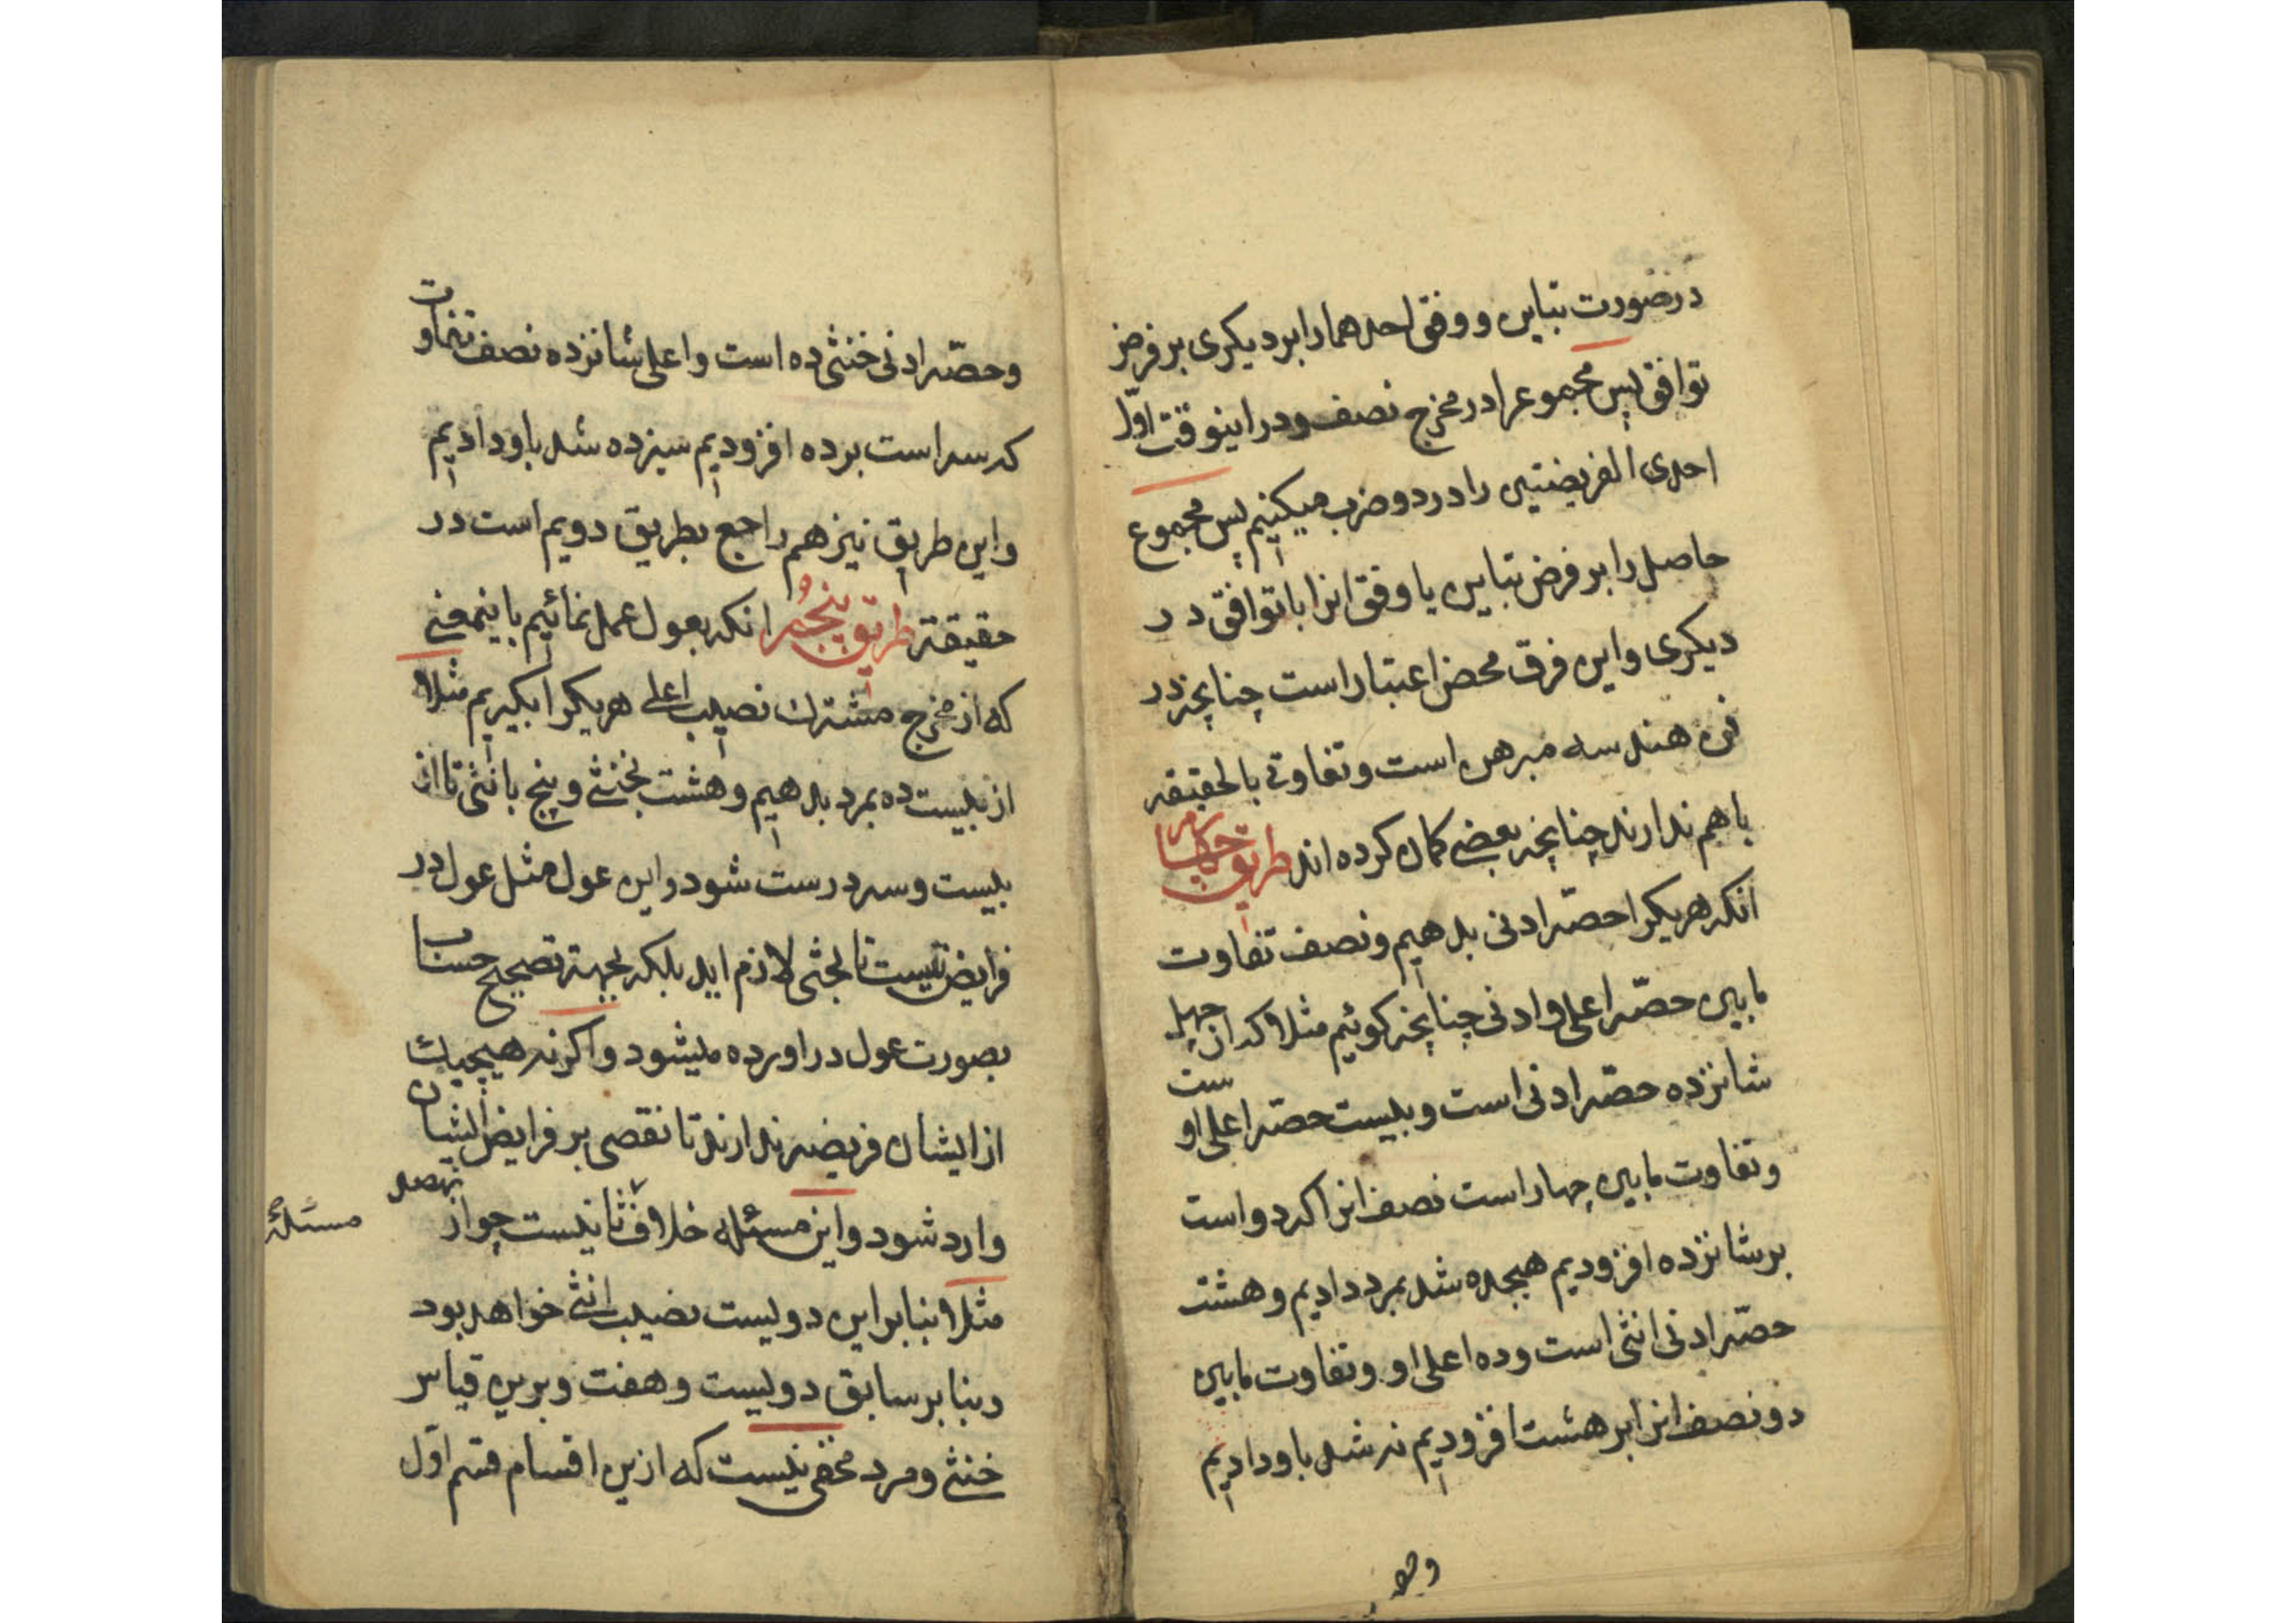 در صورت تباین و وفق احدهما را بر دیکری بر فرض
توافق پس مجموعرا در مخرج نصف و در اینوقت اوّلا
احدی الفریضتین را در دو ضرب میکنیم پس مجموع
حاصل را بر فرض تباین یا وفق انرا با توافق در
دیکری و این فرق محض اعتبار است چنانچه در
فن هندسه مبرهن است و تفاوتی بالحقیقه
با هم ندارند چنانچه بعضی کمان کرده اند طریق
انکه هریکرا حصّه ادنی بدهیم و نصف تفاوت
مابین حصّه اعلی و ادنی چنانچه کوئیم مثلا که از چهل
شانزده حصّه ادنی است و بیست حصّه اعلی اوست
و تفاوت مابین چهار است نصف انرا که دو است
بر شانزده افزودیم هیجده شد بمرد دادیم و هشت
حصّه ادنی انثی است و ده اعلی او و تفاوت مابین
دو نصف انرا بر هشت افزودیم نه شد باو دادیم
وحصه
و حصّه ادنی خنثی ده است و اعلی شانزده نصف تفاوت
که سه است بر ده افزودیم سیزده شد باو دادیم
و این طریق نیز هم راجع بطریق دویم است در
حقیقة طریق پنجم انکه بعول عمل نمائیم باینمعنی
که از مخرج مشترك نصیب اعلی هریکرا بکیریم مثلا
از بیست ده بمرد بدهیم و هشت بخنثی و پنج بانثی تا از
بیست و سه درست شود و این عول مثل عول در
فرایض نیست تا بحثی لازم اید بلکه بجهة تصحیح حساب
بصورت عول در اورده میشود و اکرنه هیچیك
از ایشان فریضه ندارند تا نقصی بر فرایض ایشان
وارد شود و این مسئله خلاف نیست چو از
مسئلهٔ
مثلا بنا بر این دویست نصیب انثی خواهد بود
و بنا بر سابق دویست و هفت و برین قیاس
خنثی و مرد مخفی نیست که ازین اقسام قسم اوّل